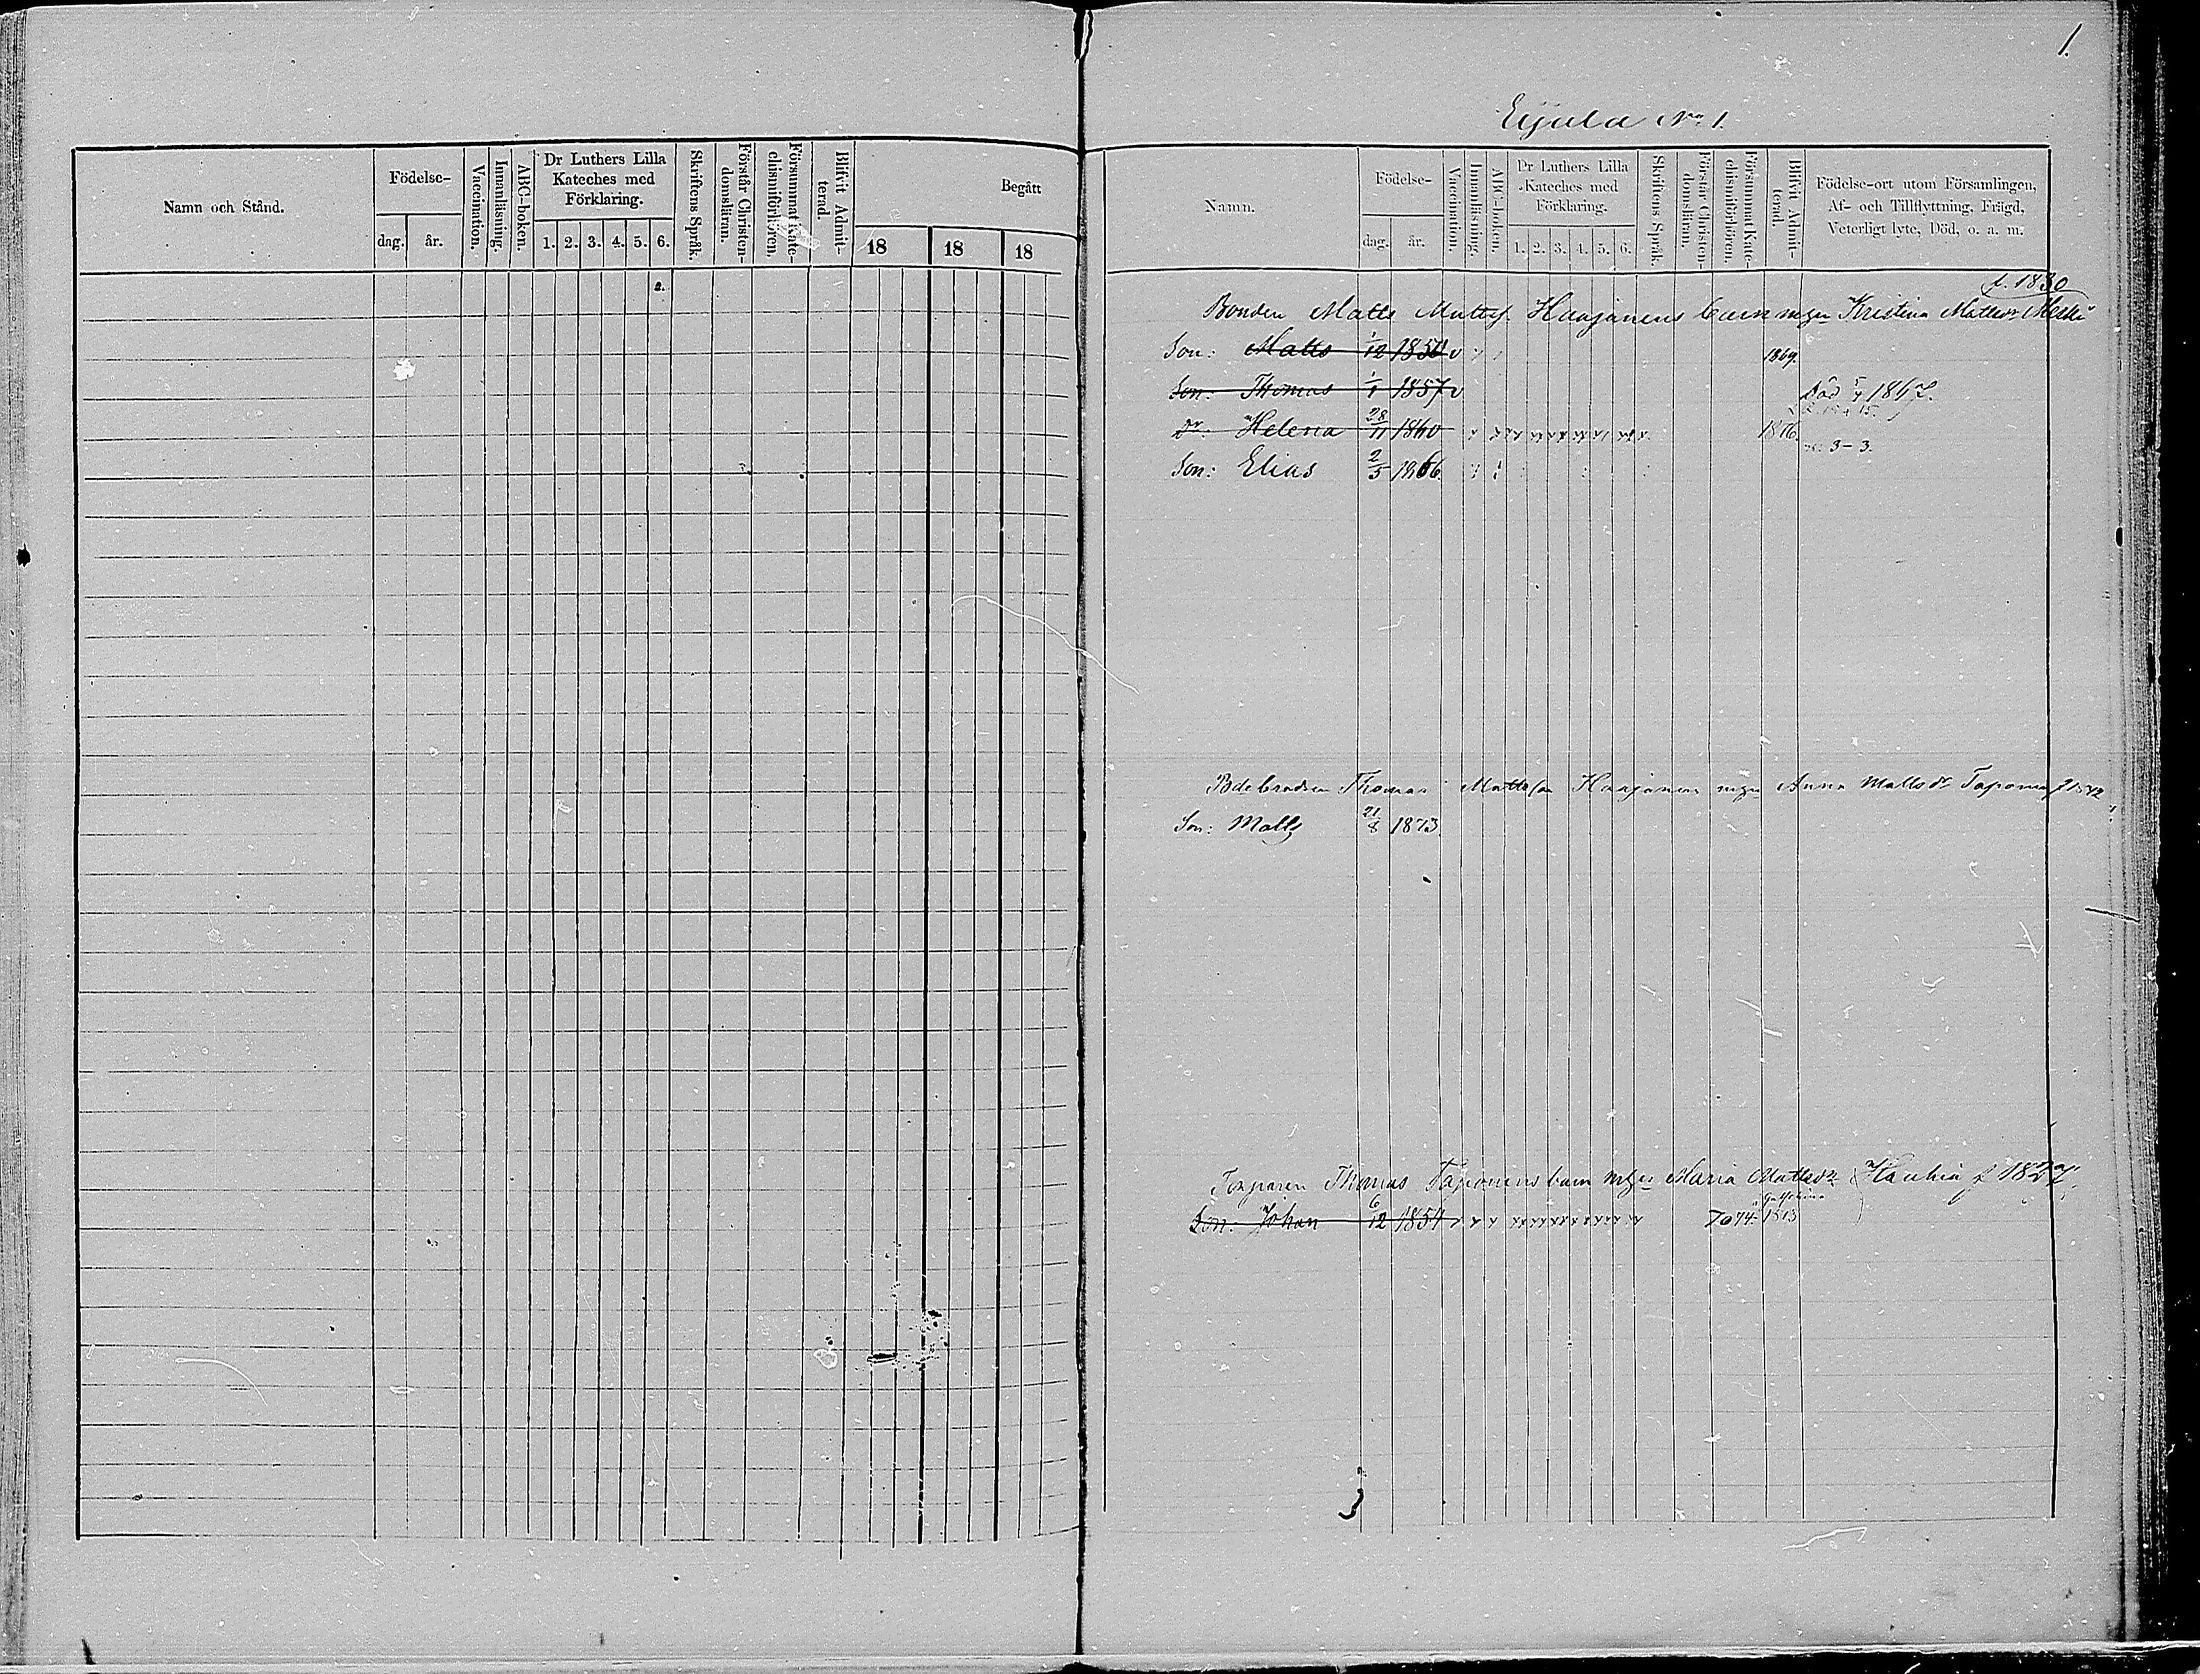 Namn och Stånd.
Födelse-
dag. år.
Vaccination.
Innanläsning.
ABC-boken.
Dr Luthers Lilla
Kateches med
Förklaring.
1. 2. 3. 4. 5. 6.
Skriftens Språk.
Förstår Christen-
domsläran.
Försummat Kate-
chismiförhören.
Blifvit Admit-
terad.
Begått
18 18 18
1.
No 1.
Namn.
Födelse-
dag. år.
Vaccination.
Innanläsning.
ABC-boken.
Dr Luthers Lilla
Kateches med
Förklaring.
1. 2. 3. 4. 5. 6.
Skriftens Språk.
Förstår Christen-
domsläran.
Försummat Kate-
chismiförhören.
Blifvit Admit-
terad.
Födelse-ort utom Församlingen,
Af- och Tillflyttning, Frägd,
Veterligt lyte, Död, o. a. m.
f. 1830
Bonden Matts Mattss. Haajanens barn m. Kristina Mattsdr
Son: Matts 1/12 1851 v 1869.
Son: Thomas 1/1 1857 v Död 1867.
dr: Helena 28/11 1860 1876. 3-3.
Son: Elias 2/5 1866.
Thomas Mattsson Haajanen Anna Mattsdr
Son: Matts 21/8 1873.
Torparen Thomas Taponens barn Maria Mattsdr
Son: Johan 6/12 1854 70 74